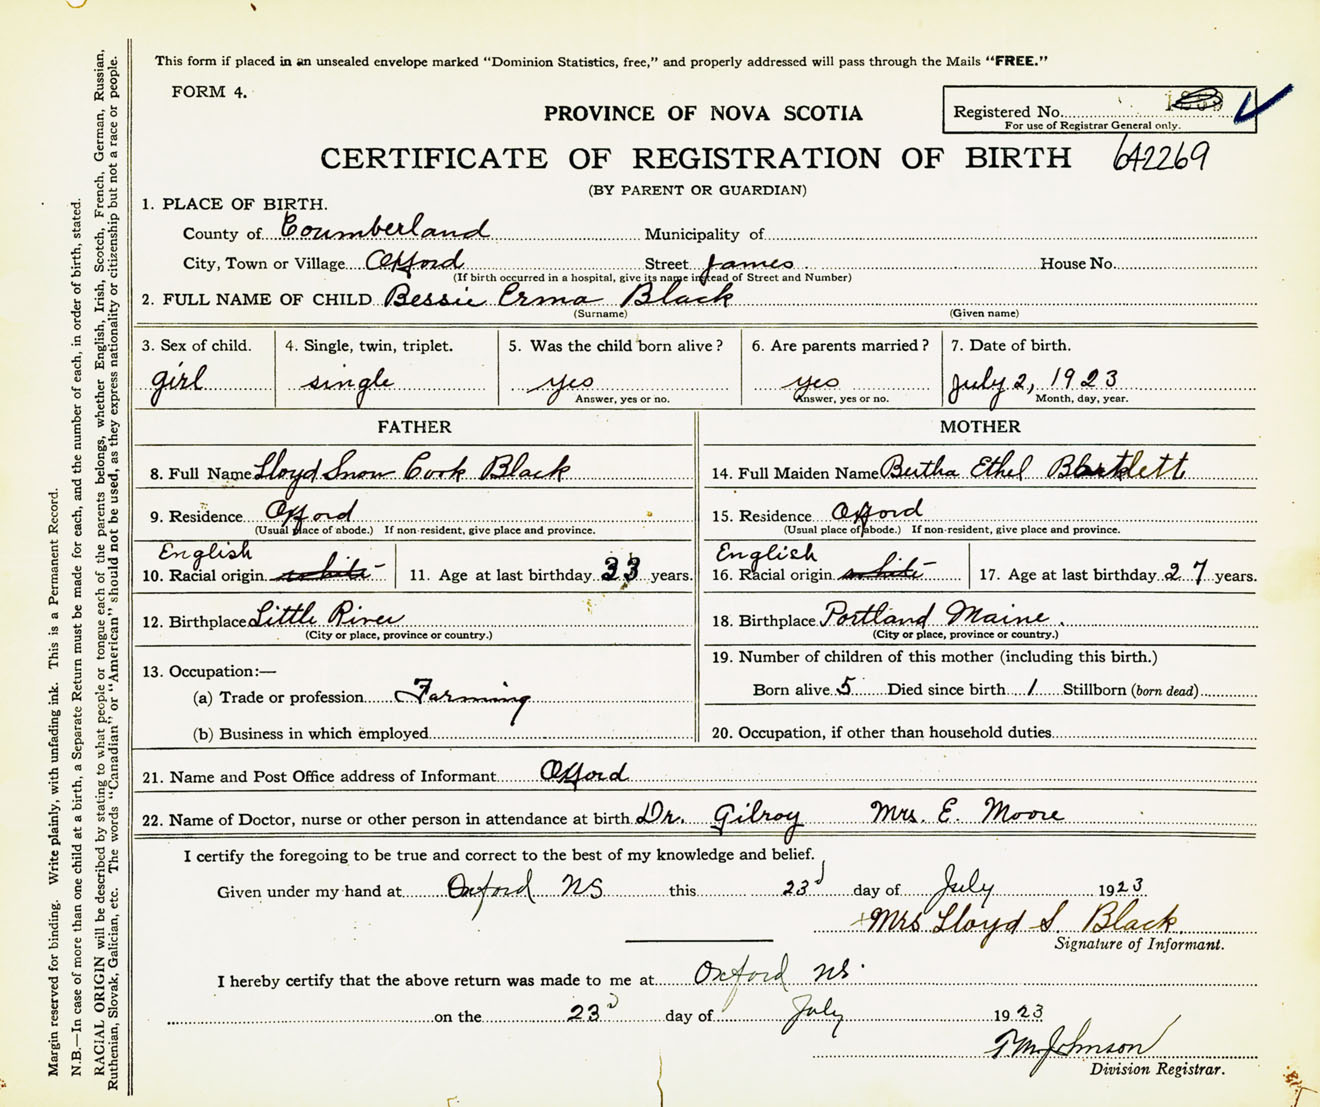 This form if placed in an unsealed envelope marked "Dominion Statistics, free," and properly addressed will pass through the Mails "FREE."
FORM 4.
PROVINCE OF NOVA SCOTIA
Registered No.
For use of Registrar General only.
CERTIFICATE OF REGISTRATION OF BIRTH 642269
(BY PARENT OR GUARDIAN)
1. PLACE OF BIRTH.
County of Coumberland Municipality of
City, Town or Village Oxford Street James House No.
(If birth occurred in a hospital, give its name instead of Street and Number)
2. FULL NAME OF CHILD Bessie Erma Black
(Surname) (Given name)
3. Sex of child. 4. Single, twin, triplet. 5. Was the child born alive? 6. Are parents married? 7. Date of birth.
girl single yes yes July 2, 1923
Answer, yes or no. Answer, yes or no. Month, day, year.
FATHER
8. Full Name Lloyd Snow Cook Black
9. Residence Oxford
(Usual place of abode.) If non-resident, give place and province.
English
10. Racial origin white 11. Age at last birthday 33 years.
12. Birthplace Little River
(City or place, province or country.)
13. Occupation:—
(a) Trade or profession Farming
(b) Business in which employed
MOTHER
14. Full Maiden Name Bertha Ethel Bartlett
15. Residence Oxford
(Usual place of abode.) If non-resident, give place and province.
English
16. Racial origin white 17. Age at last birthday 27 years.
18. Birthplace Portland Maine.
(City or place, province or country.)
19. Number of children of this mother (including this birth.)
Born alive 5 Died since birth 1 Stillborn (born dead)
20. Occupation, if other than household duties
21. Name and Post Office address of Informant Oxford
22. Name of Doctor, nurse or other person in attendance at birth Dr. Gilroy Mrs. E. Moore
I certify the foregoing to be true and correct to the best of my knowledge and belief.
Given under my hand at Oxford NS this 23d day of July 1923
Mrs Lloyd S. Black
Signature of Informant.
I hereby certify that the above return was made to me at Oxford NS.
on the 23d day of July 1923
Johnson
Division Registrar.
Margin reserved for binding. Write plainly, with unfading ink. This is a Permanent Record.
N.B.—In case of more than one child at a birth, a Separate Return must be made for each, and the number of each, in order of birth, stated.
RACIAL ORIGIN will be described by stating to what people or tongue each of the parents belongs, whether English, Irish, Scotch, French, German, Russian,
Ruthenian, Slovak, Galician, etc. The words "Canadian" or "American" should not be used, as they express nationality or citizenship but not a race or people.